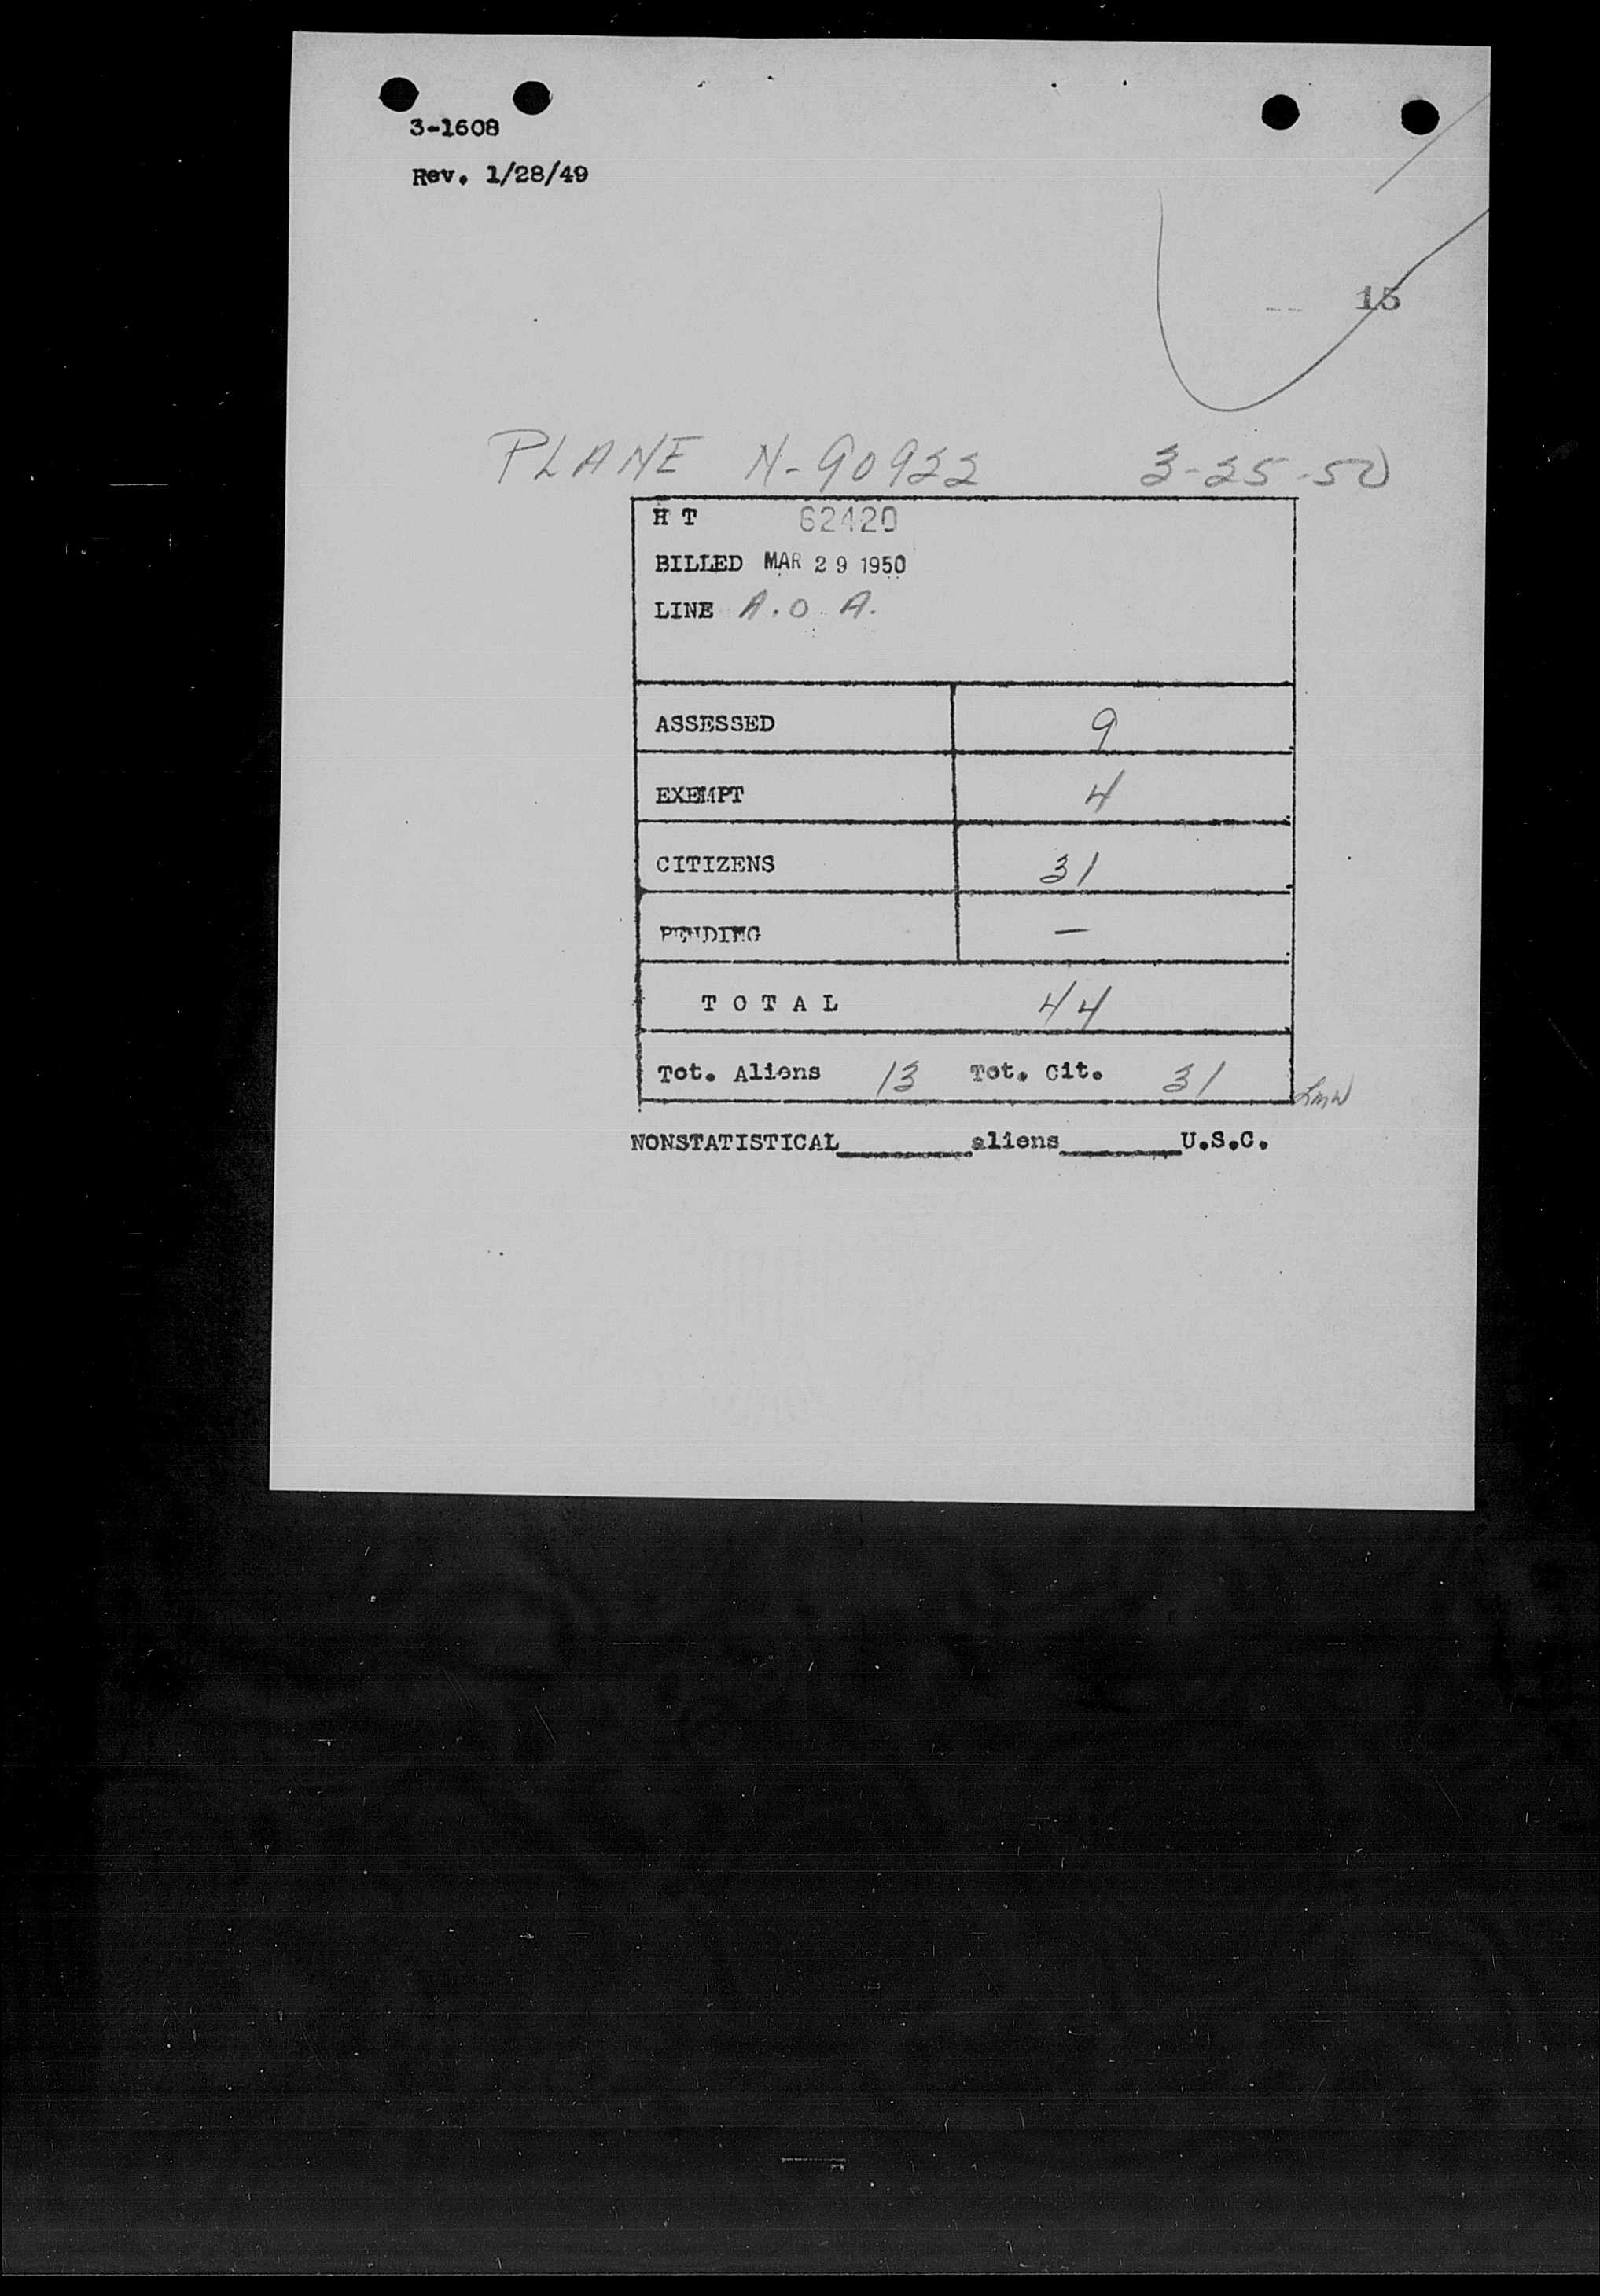 3-1608
Rev. 1/28/49
15
PLANE N-90922 3-25-50
H T 62420
BILLED MAR 29 1950
LINE A.O.A.
ASSESSED 9
EXEMPT 4
CITIZENS 31
PENDING —
TOTAL 44
Tot. Aliens 13 Tot. Cit. 31
LMW
NONSTATISTICAL________aliens________U.S.C.